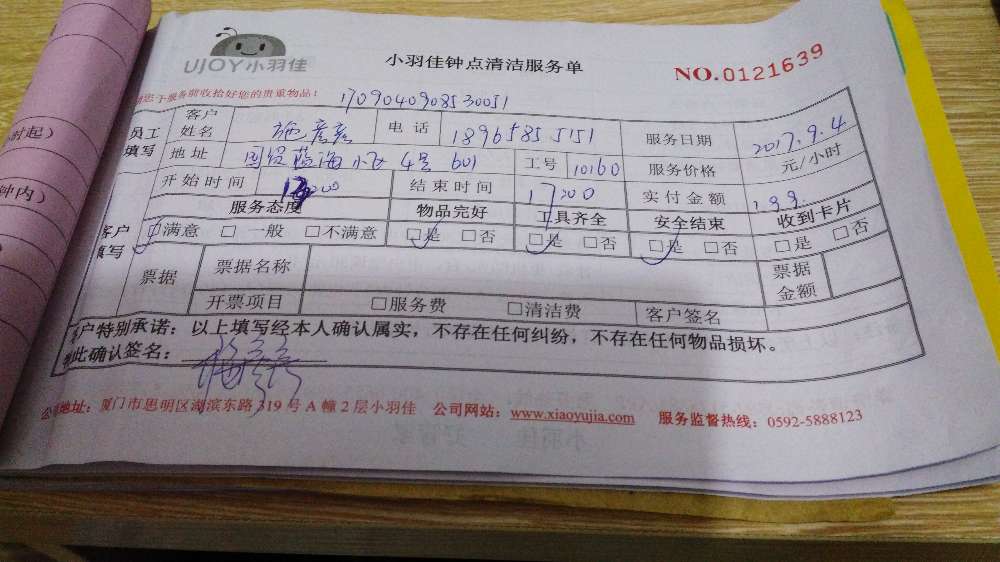 时起）
钟内）
UJOY小羽佳
小羽佳钟点清洁服务单
NO.0121639
您于服务前收拾好您的贵重物品！ 1709040908530051
员工填写 客户姓名 施彦彦 电话 18965855151 服务日期 2017.9.4
地址 国贸蓝海 4号 601 工号 10160 服务价格 元/小时
开始时间 结束时间 17:00 实付金额
服务态度 物品完好 工具齐全 安全结束 收到卡片
客户填写 □满意 □一般 □不满意 □是 □否 □是 □否 □是 □否 □是 □否
票据 票据名称 票据金额
开票项目 □服务费 □清洁费 客户签名
户特别承诺：以上填写经本人确认属实，不存在任何纠纷，不存在任何物品损坏。
此确认签名：
公司地址：厦门市思明区湖滨东路319号A幢2层小羽佳 公司网站：www.xiaoyujia.com 服务监督热线：0592-5888123